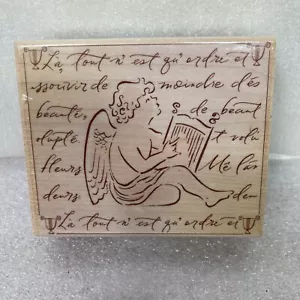 La tout n'est qu'ordre et
ssouvir de moindre dés
beauté, s de beaut
olupté. t volu
fleurs Me lás
deurs deu
La tout n'est qu'ordre et